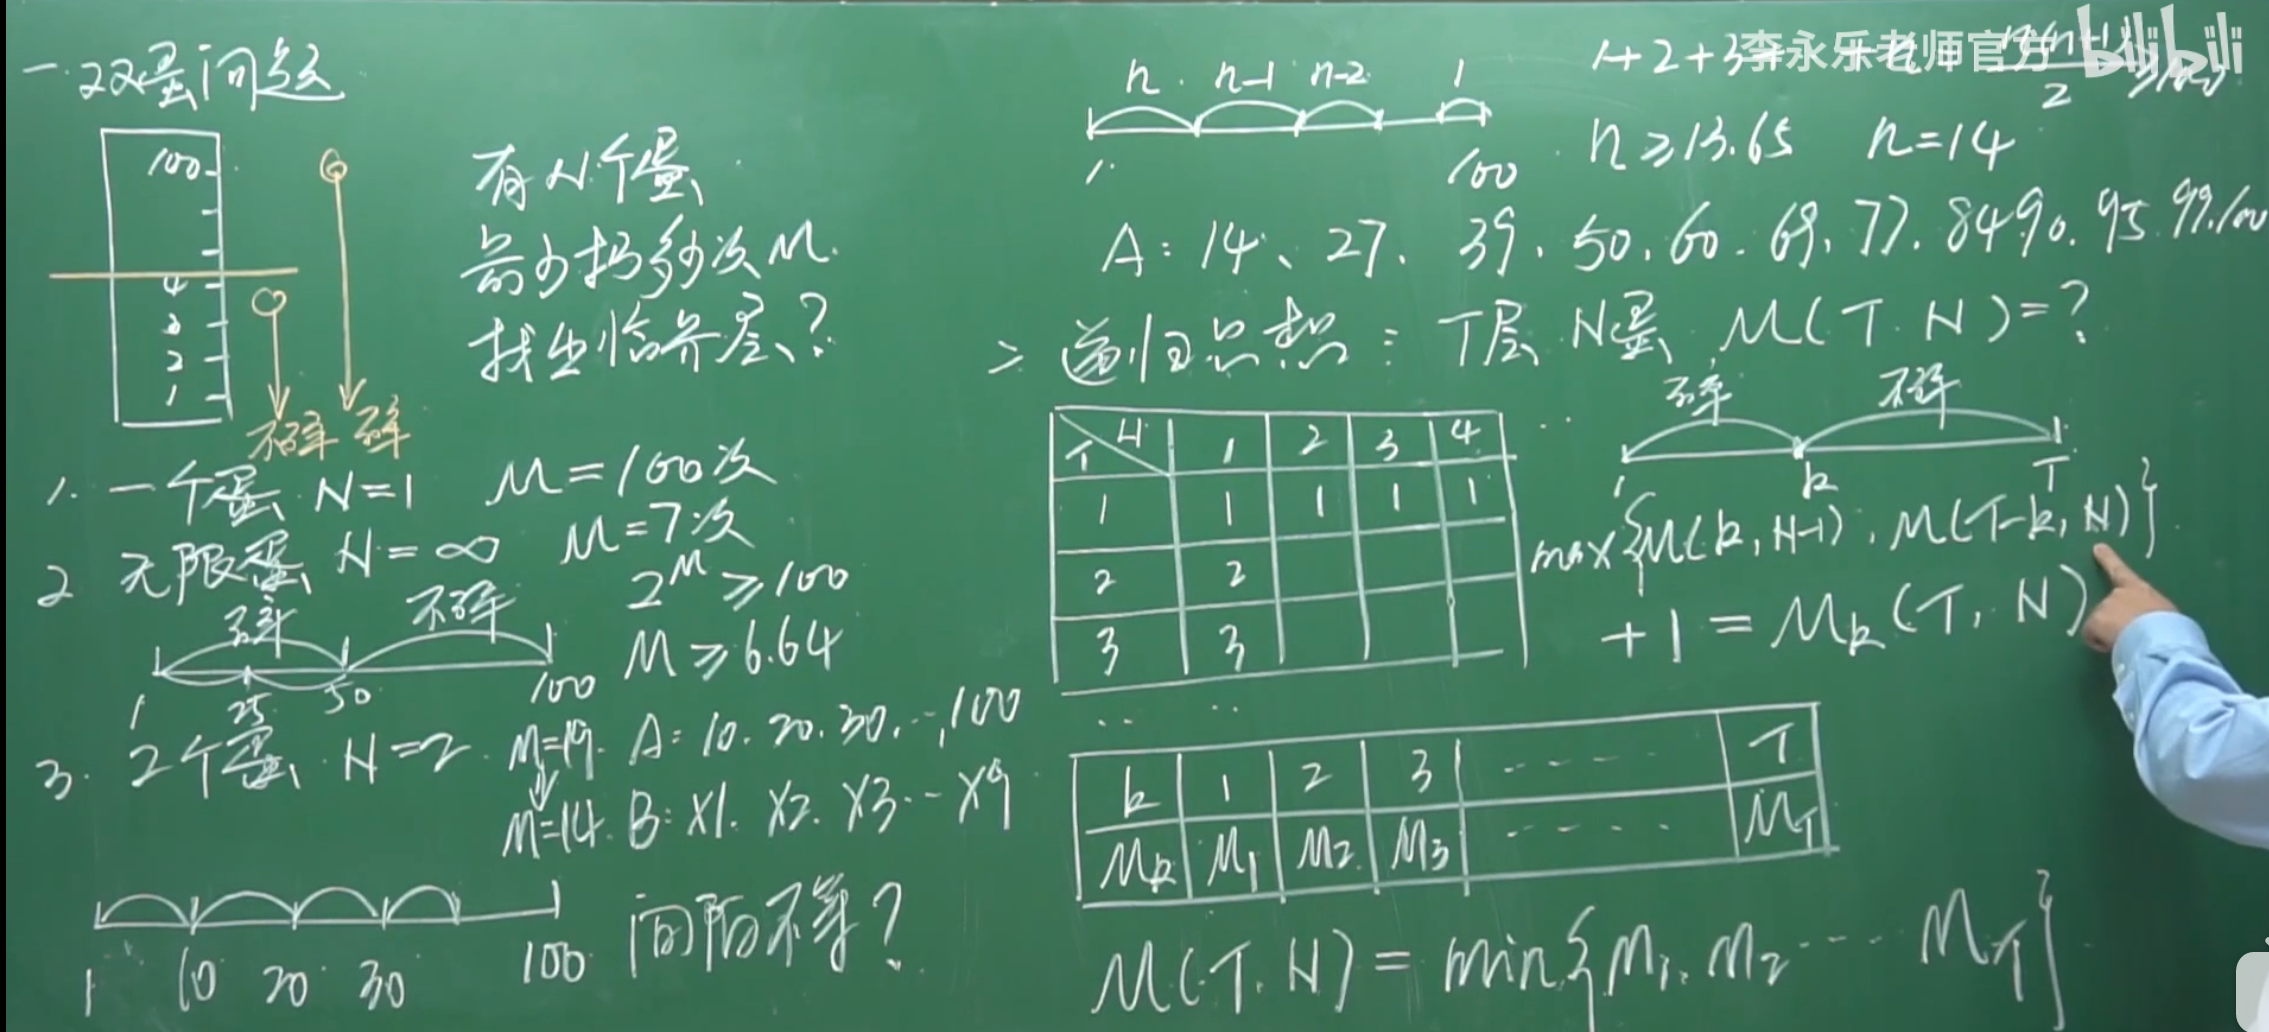 一.双蛋问题
100
4
3
2
1
不碎 碎
有N个蛋
最少扔多少次M.
找出临界层?
1. 一个蛋 N=1 M=100次
2 无限蛋 N=∞ M=7次
2^M≥100
M≥6.64
碎 不碎
1 25 50 100
3. 2个蛋 N=2. M=19. A: 10. 20. 30. …,100
M=14. B: X1. X2. X3. … X9
1 10 20 30 100
间隔不等?
n. n-1 n-2 1
1. 100
1+2+3+
2
n≥13.65 n=14
A: 14、27、39、50、60、69、77、84 90、95 99、100
二 递归思想: T层 N蛋 M(T.N)=?
碎 不碎
1 k T
T N 1 2 3 4 ..
1 1 1 1 1
2 2
3 3
.. ..
max{M(k,N-1), M(T-k,N)}
+1=Mk(T,N)
k 1 2 3 ----- T
Mk M1 M2 M3 ----- MT
M(T.N)=min{M1.M2 ---- MT}
李永乐老师官方 bilibili